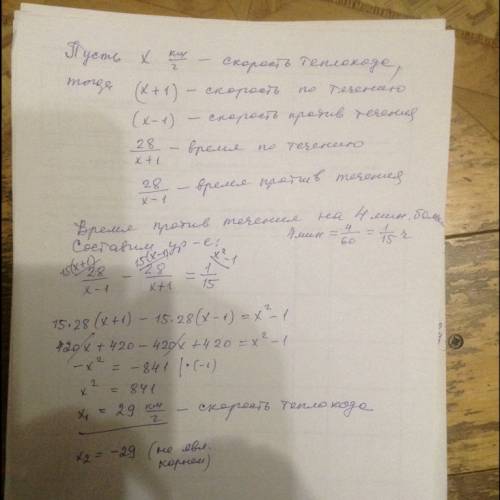 Пусть x км/г – скорость теплохода,
тогда (x+1) – скорость по течению
(x-1) – скорость против течения
28/(x+1) – время по течению
28/(x-1) – время против течения
Время против течения на 4 мин. боль
Составим ур-е: 4 мин = 4/60 = 1/15 г
15(x+1) 15(x-1) x²-1
28/(x-1) - 28/(x+1) = 1/15
15·28(x+1) - 15·28(x-1) = x²-1
420x + 420 - 420x + 420 = x²-1
-x² = -841 |·(-1)
x² = 841
x₁ = 29 км/г – скорость теплохода
x₂ = -29 (не явл. корнем)